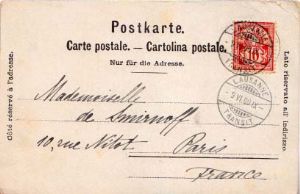 Postkarte.
Carte postale. — Cartolina postale.
Nur für die Adresse.
Côté réservé à l'adresse.
Lato riservato all'indirizzo.
LAUSANNE
10
LAUSANNE
TRANSIT
Mademoiselle
de Smirnoff
10, rue Nitot, Paris
France